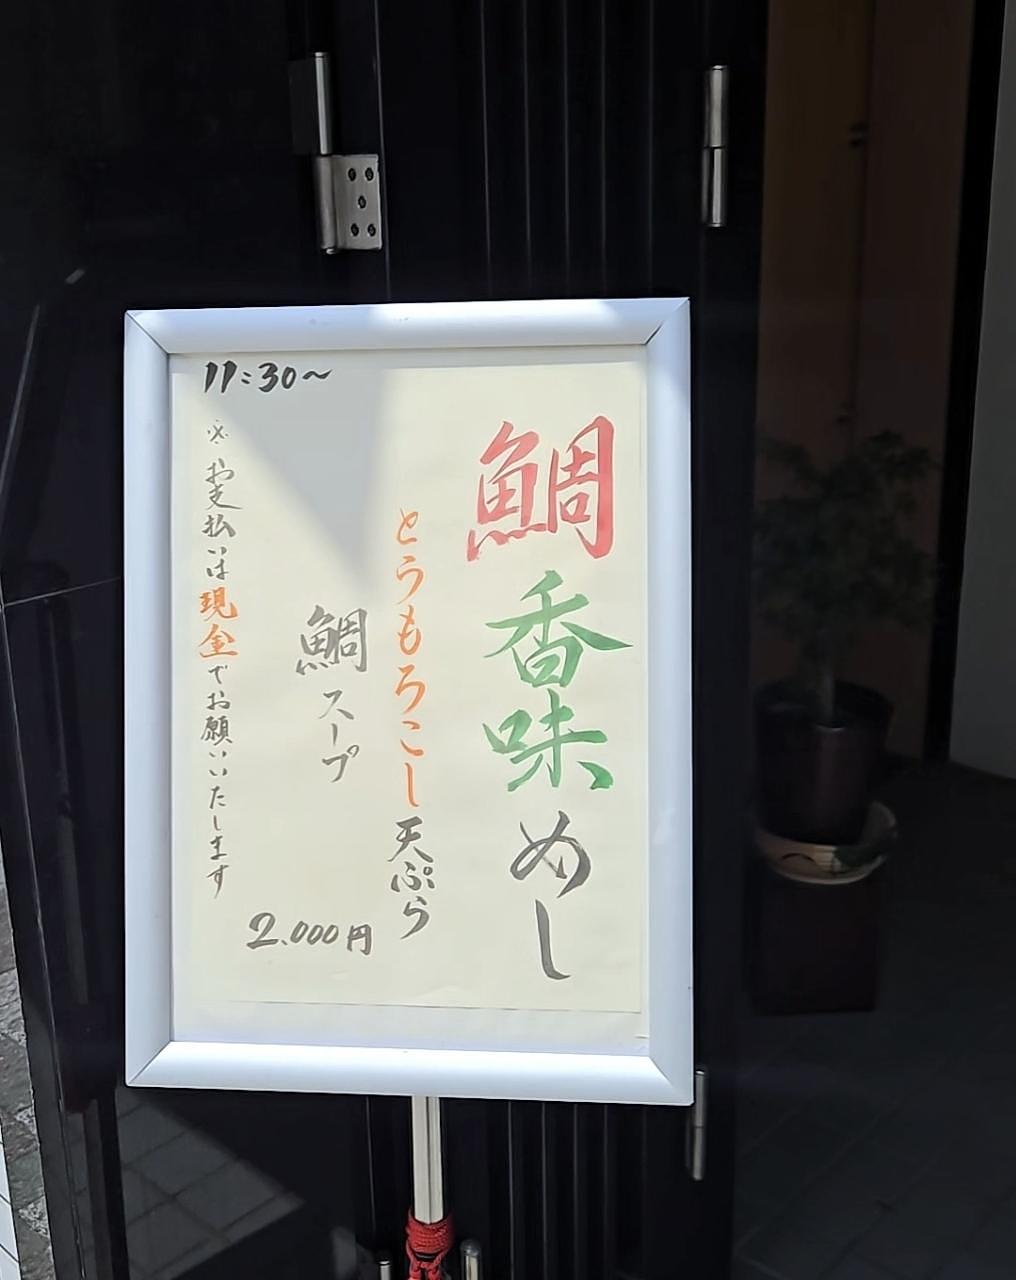 11:30~
鯛香味めし
とうもろこし天ぷら
鯛スープ
2.000円
※お支払いは現金でお願いいたします